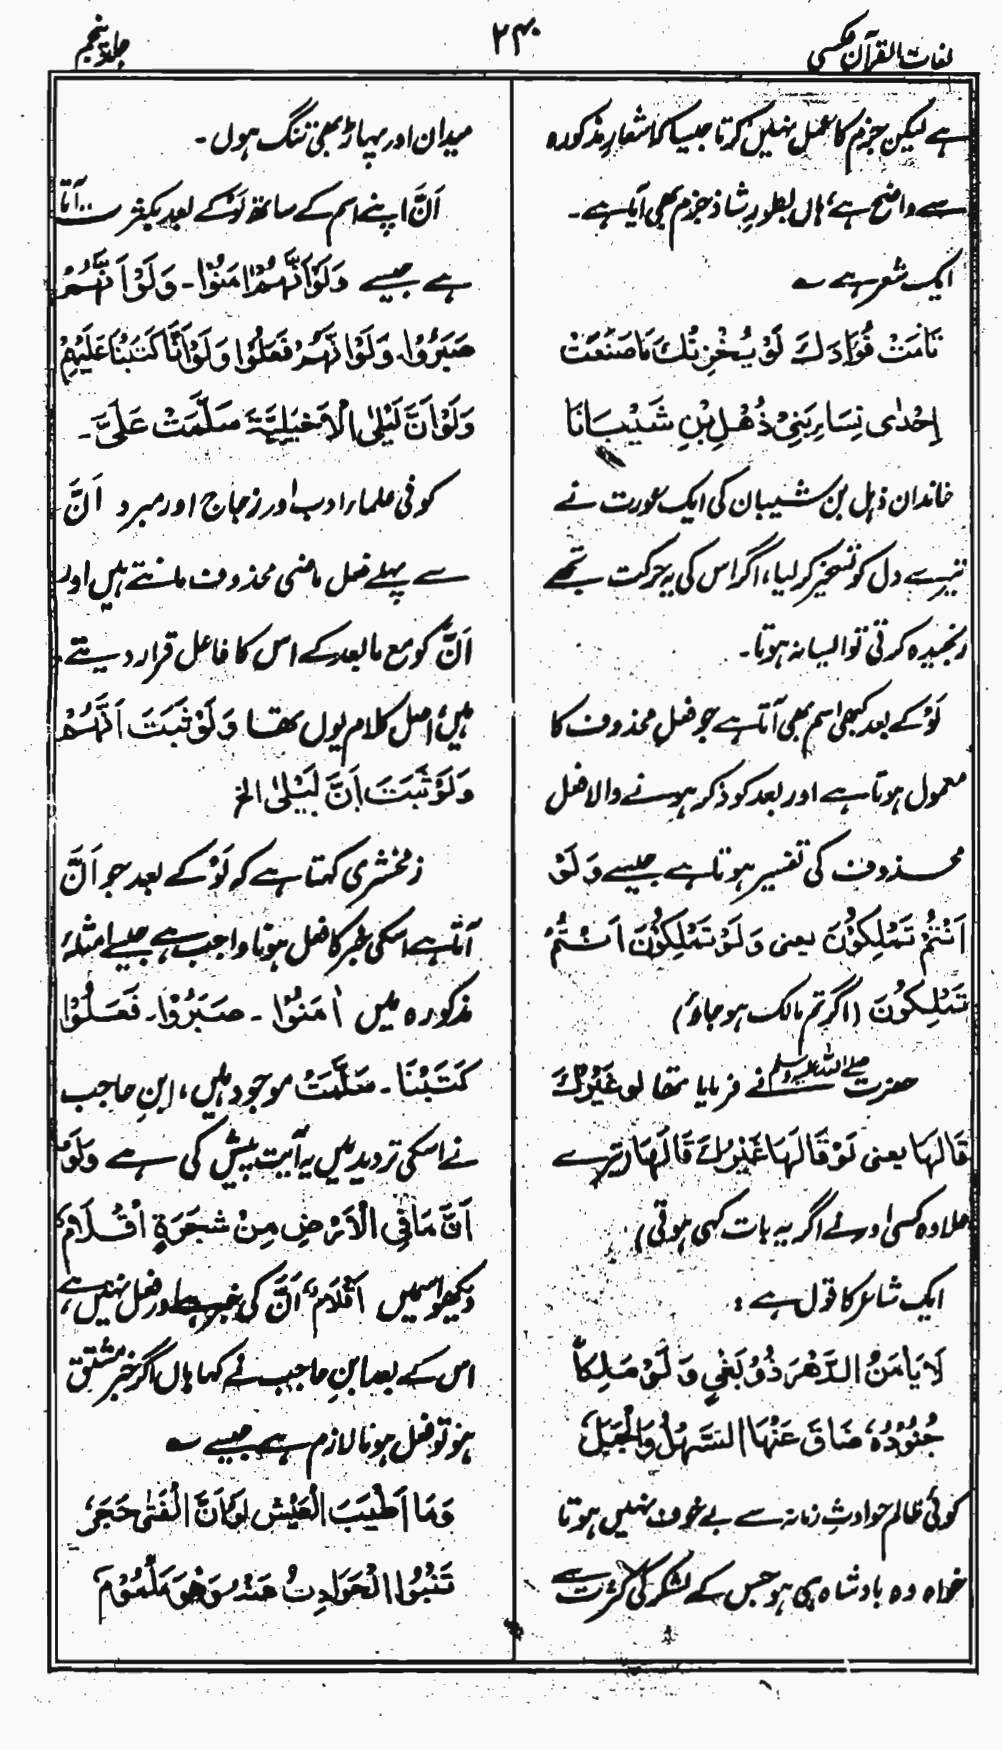 لغات القرآن عکسی
۲۴۰
جلد پنجم
ہے لیکن جزم کا عمل نہیں کرتا جیسا کہ اشعار مذکورہ
سے واضح ہے، ہاں بطورِ شاذ جزم بھی آیا ہے۔
ایک شعر ہے ؎
تَامَتْ فُؤَادَكَ لَوْ يُحْزِنُكَ مَا صَنَعَتْ
اِحْدٰى نِسَاءِ بَنِيْ ذُهْلِ بْنِ شَيْبَانَا
خاندان ذہل بن شیبان کی ایک عورت نے
تیرے دل کو تسخیر کر لیا، اگر اس کی یہ حرکت تجھے
رنجیدہ کرتی تو ایسا نہ ہوتا۔
لَوْ کے بعد کبھی اسم بھی آتا ہے جو فعل محذوف کا
معمول ہوتا ہے اور بعد کو ذکر ہونے والا فعل
محذوف کی تفسیر ہوتا ہے جیسے وَ لَوْ
اَنْتُمْ تَمْلِكُوْنَ یعنی وَ لَوْ تَمْلِكُوْنَ اَنْتُمْ
تَمْلِكُوْنَ (اگر تم مالک ہو جاؤ)
حضرت صلے اللہ علیہ وسلم نے فرمایا تھا لو غَيْرُكَ
قَالَهَا یعنی لَوْ قَالَهَا غَيْرُكَ قَالَهَا (تیرے
علاوہ کسی اور نے اگر یہ بات کہی ہوتی)
ایک شاعر کا قول ہے :
لَا يَاْمَنُ الدَّهْرَ ذُوْ بَغْيٍ وَ لَوْ مَلِكًا
جُنُوْدُهٗ ضَاقَ عَنْهَا السَّهْلُ وَالْجَبَلُ
کوئی ظالم حوادثِ زمانہ سے بے خوف نہیں ہوتا
خواہ وہ بادشاہ ہی ہو جس کے لشکر کی کثرت سے
میدان اور پہاڑ بھی تنگ ہوں۔
اَنَّ اپنے اسم کے ساتھ لَوْ کے بعد بکثرت آتا
ہے جیسے وَلَوْ اَنَّهُمْ اٰمَنُوْا۔ وَلَوْ اَنَّهُمْ
صَبَرُوْا۔ وَلَوْ اَنَّهُمْ فَعَلُوْا وَلَوْ اَنَّا كَتَبْنَا عَلَيْهِمْ
وَلَوْ اَنَّ لَيْلٰى الْاَخْيَلِيَّةَ سَلَّمَتْ عَلَيَّ۔
کوفی علماء ادب اور زجاج اور مبرد اَنَّ
سے پہلے فعل ماضی محذوف مانتے ہیں اور
اَنَّ کو مع مابعد کے اس کا فاعل قرار دیتے
ہیں، اصل کلام یوں تھا وَ لَوْ ثَبَتَ اَنَّهُمْ
وَ لَوْ ثَبَتَ اَنَّ لَيْلٰى الخ
زمخشری کہتا ہے کہ لَوْ کے بعد جو اَنَّ
آتا ہے اسکی خبر کا فعل ہونا واجب ہے جیسے امثلہ
مذکورہ میں اٰمَنُوْا ۔ صَبَرُوْا۔ فَعَلُوْا
كَتَبْنَا ۔ سَلَّمَتْ موجود ہیں، ابنِ حاجب
نے اسکی تردید میں یہ آیت پیش کی ہے وَلَوْ
اَنَّ مَا فِي الْاَرْضِ مِنْ شَجَرَةٍ اَقْلَامٌ
دیکھو اسمیں اَقْلَامٌ، اَنَّ کی خبر ہے اور فعل نہیں ہے،
اس کے بعد ابنِ حاجب نے کہا ہاں اگر خبر مشتق
ہو تو فعل ہونا لازم ہے جیسے ؎
وَمَا اَطْيَبَ الْعَيْشَ لَوْ اَنَّ الْفَتٰى حَجَرٌ
تَنْبُو الْحَوَادِثُ عَنْهُ وَهُوَ مَلْمُوْمٌ